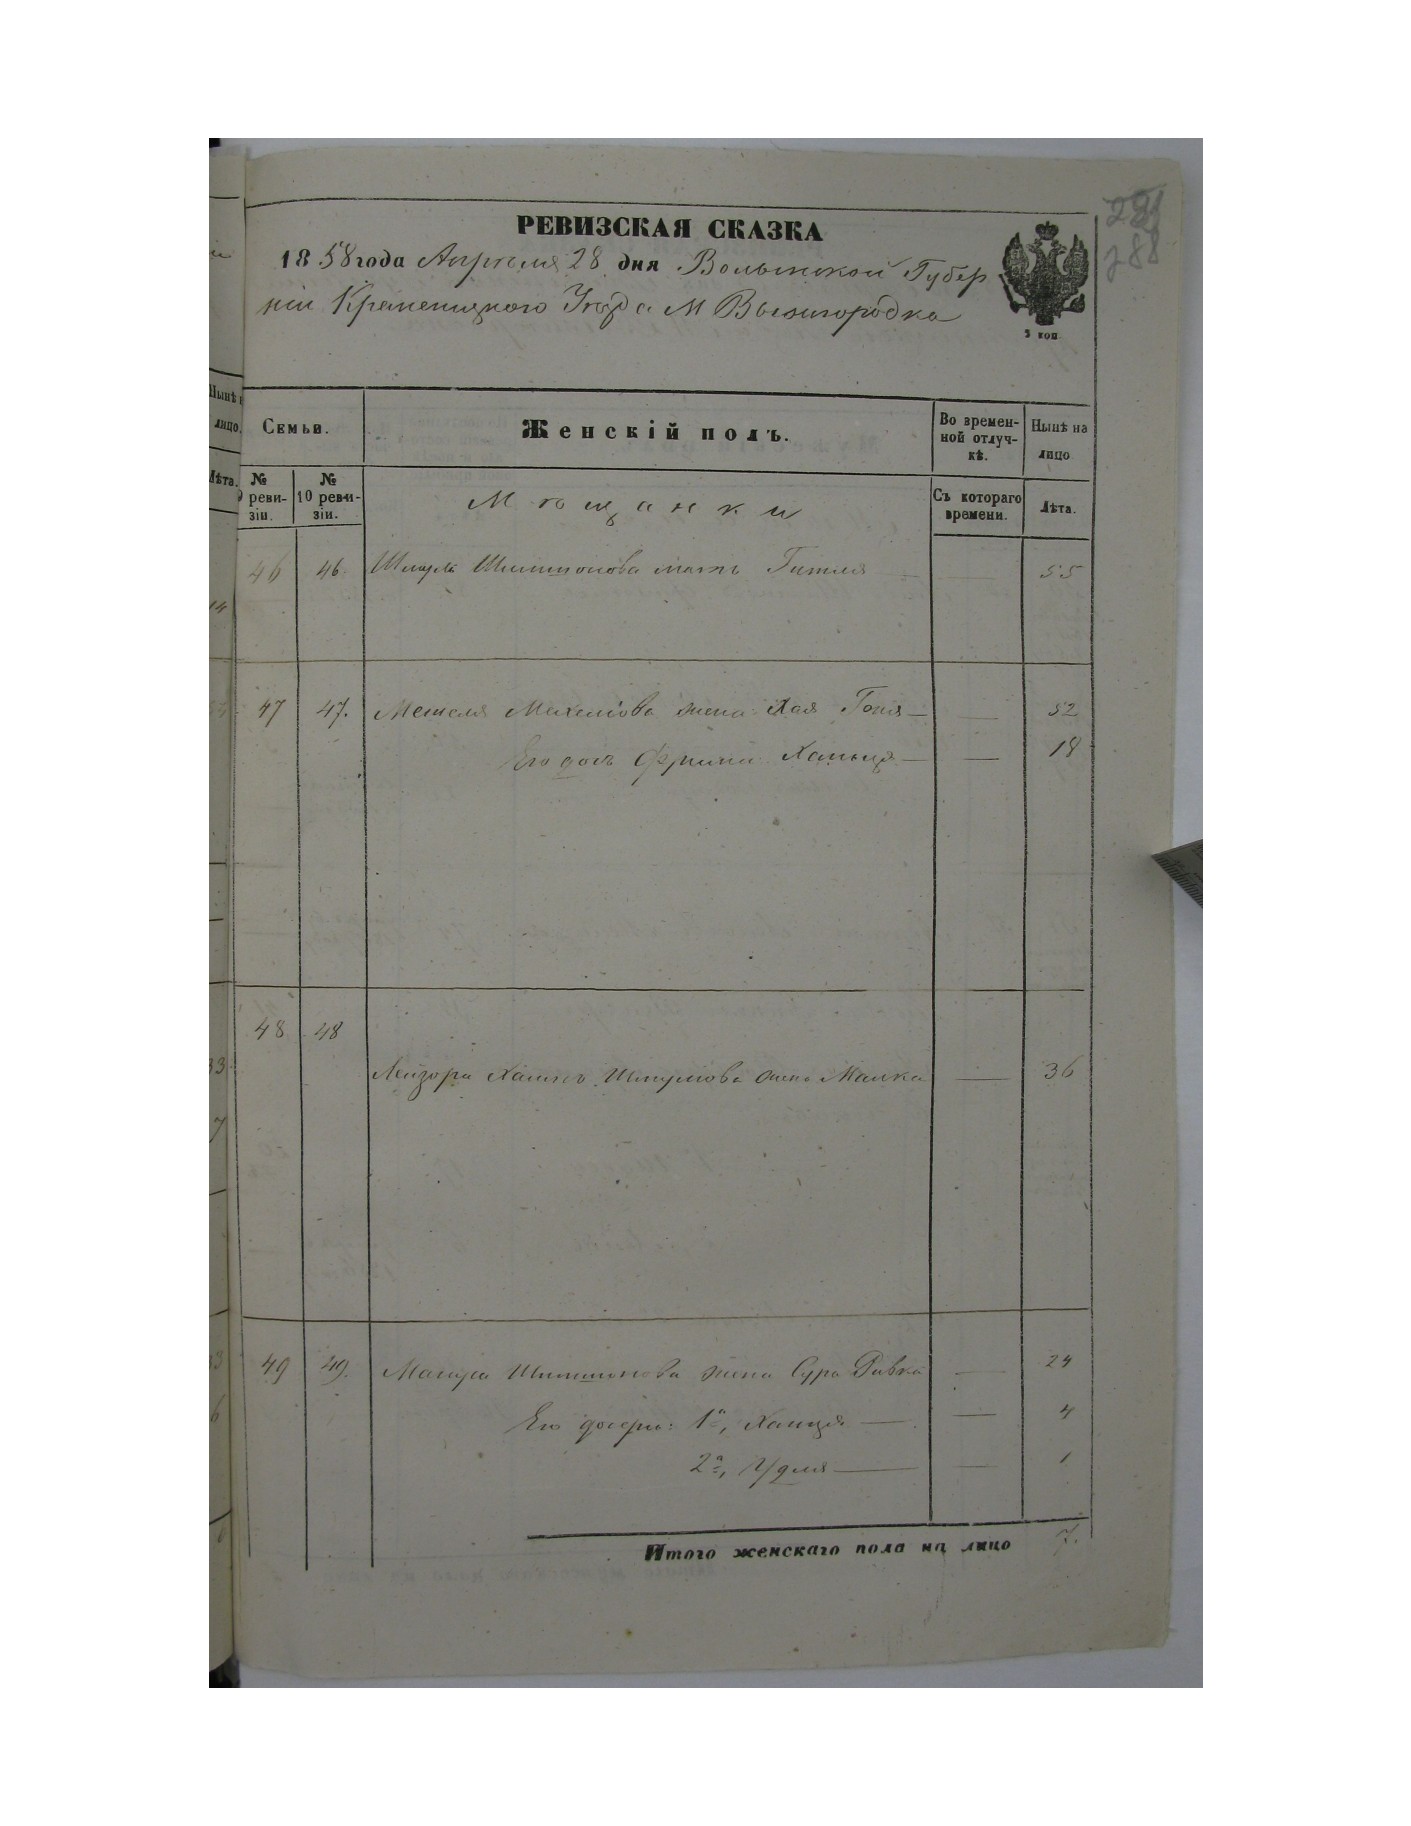 291
288
РЕВИЗСКАЯ СКАЗКА
1858 года Апреля 28 дня Волынской Губер
ніи Кременецкого Уезда М Вышгородка
3 коп.
Нынѣ на лицо.
Лѣта.
Семьи.
Женскій полъ.
Во времен-
ной отлуч-
кѣ.
Нынѣ на
лицо
№
9 реви-
зіи.
№
10 реви-
зіи.
Мѣщанки
Съ котораго
времени.
Лѣта.
46 46. Шмуля Шимшонова мать Гитля — — 55
47 47. Мехеля жена Хая — — 52
Его дочь Фрима — — 18
48 48
Лейзора Шмулюва жена Малка — 36
49 49. Шимшонова жена Сура Ривка — 24
Его дочери: 1а, Ханця — — 4
2а, Удля — — 1
Итого женскаго пола на лицо 7.